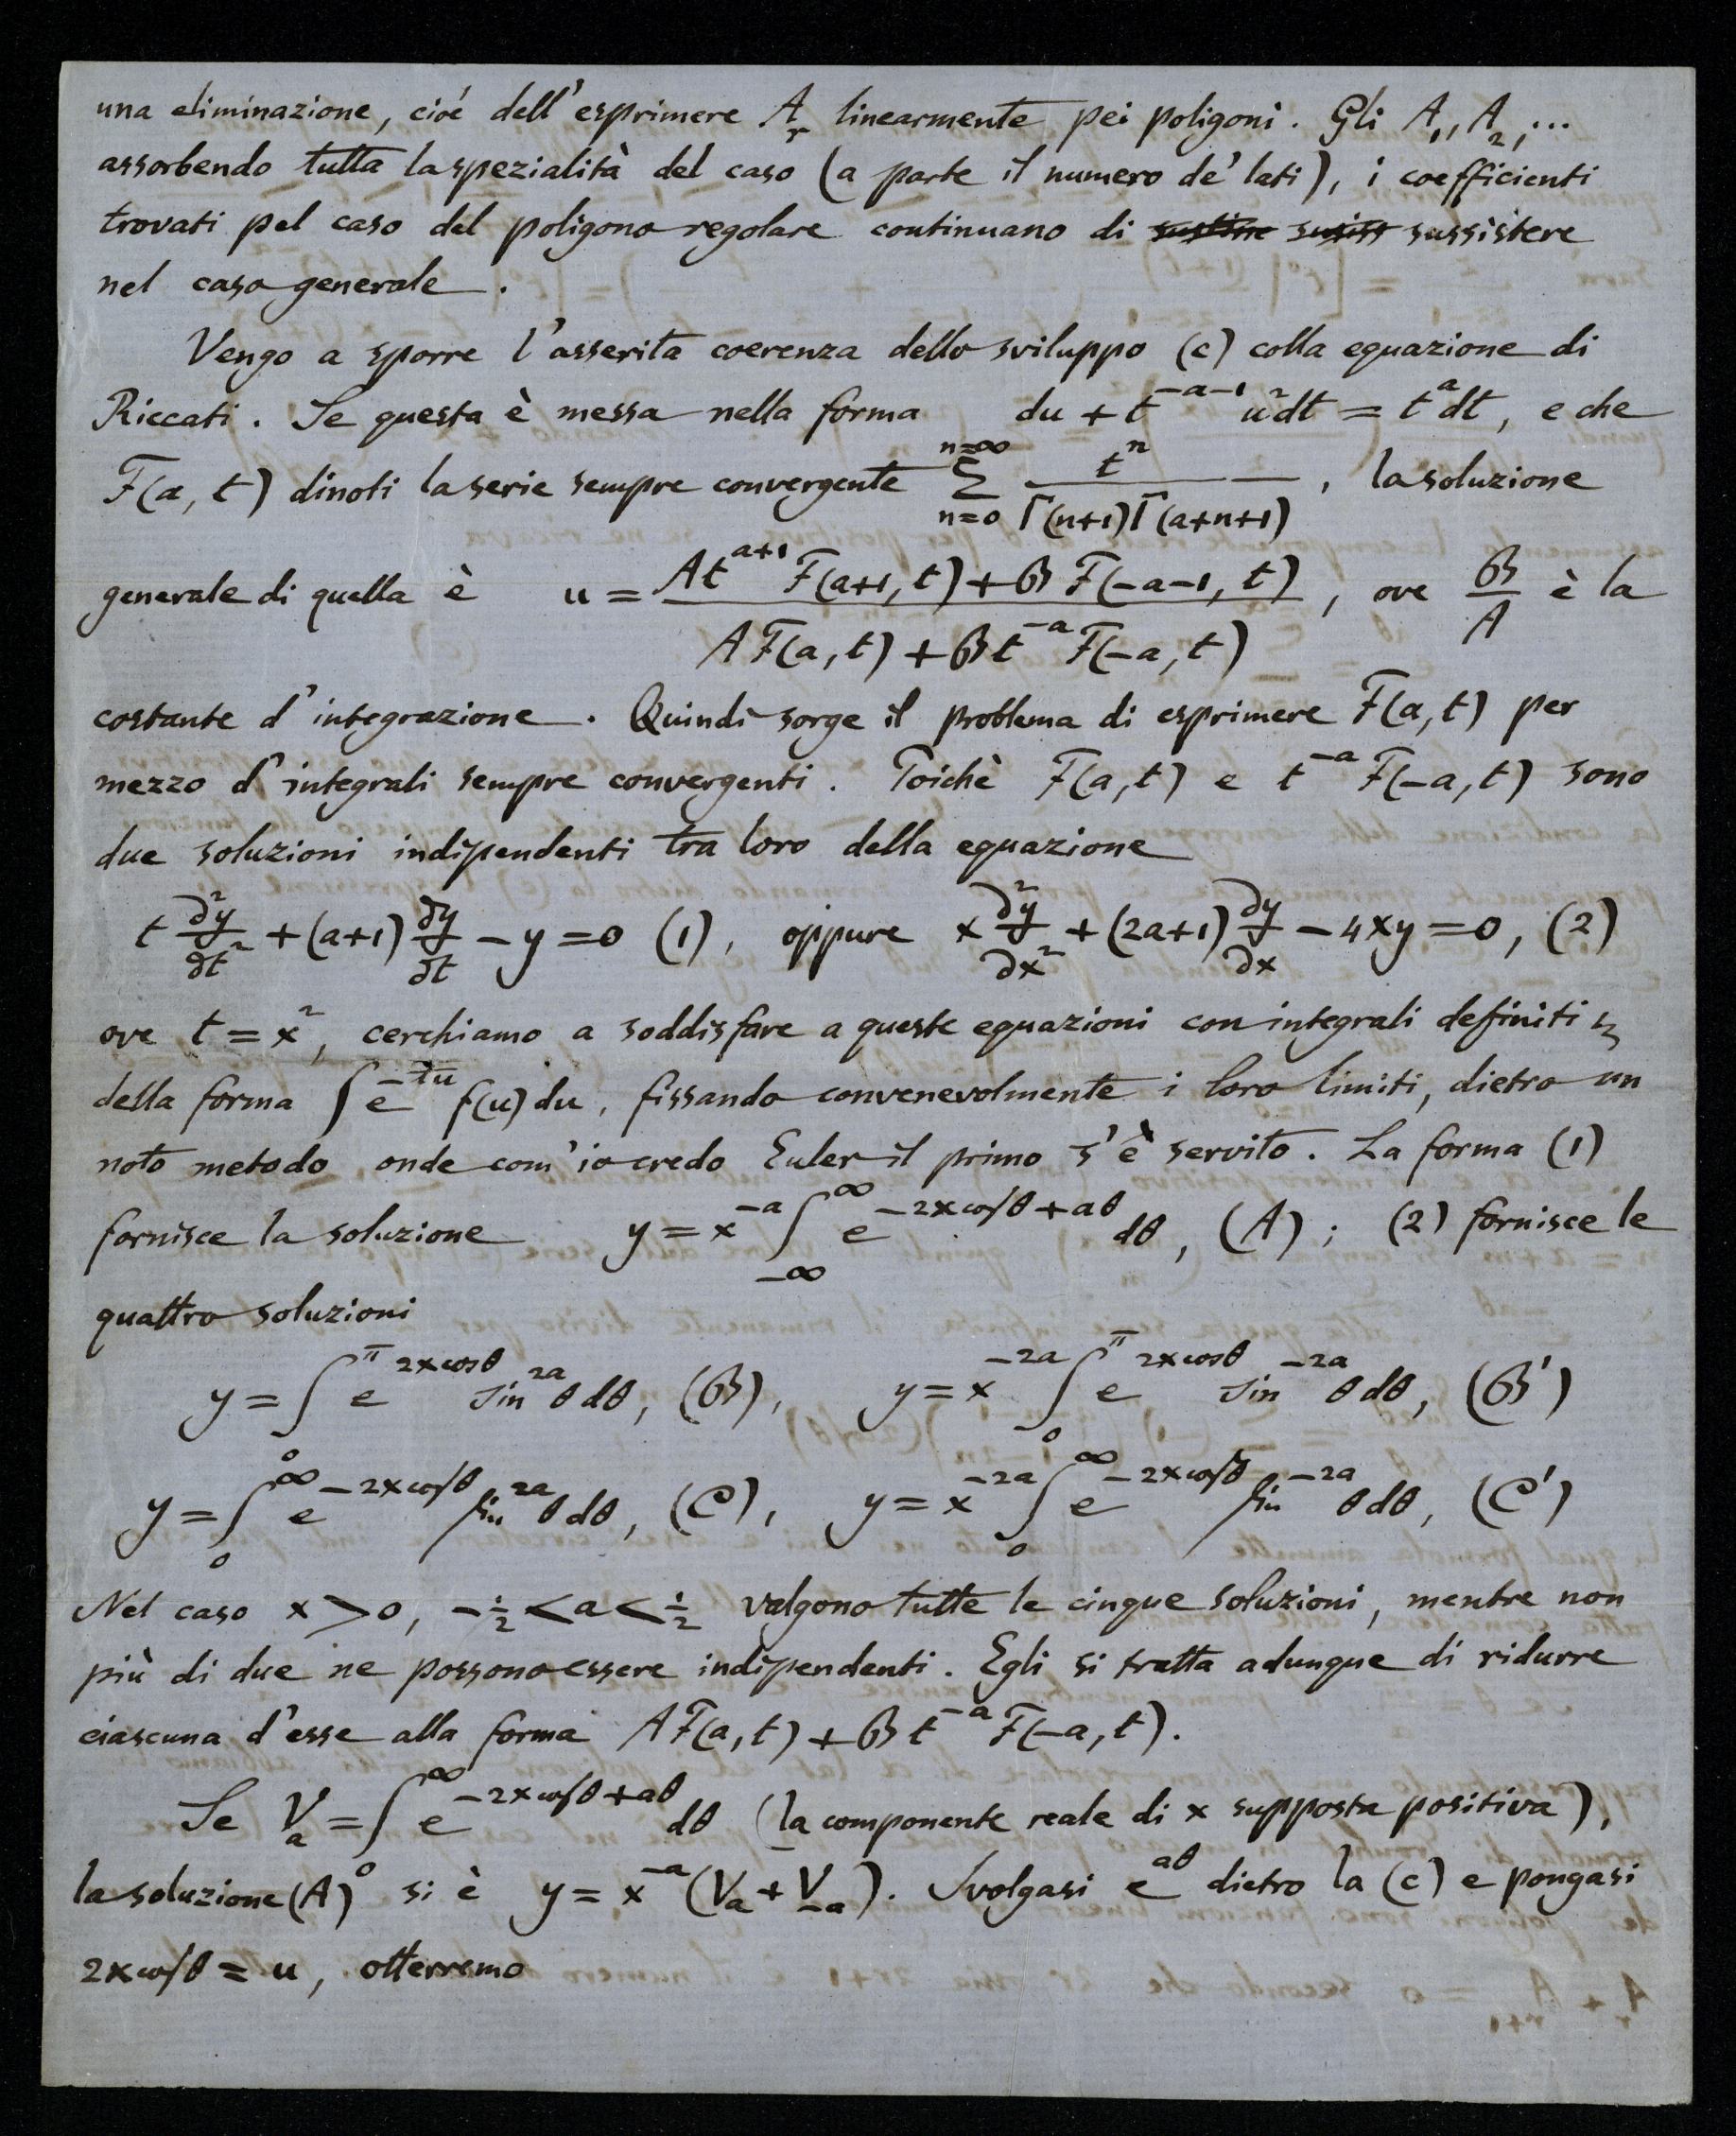 una eliminazione, cioé dell'esprimere A_r linearmente pei poligoni. Gli A_1, A_2, ...
assorbendo tutta la spezialità del caso (a parte il numero de' lati), i coefficienti
trovati pel caso del poligono regolare continuano di sussistere
nel caso generale.
Vengo a sporre l'asserita coerenza dello sviluppo (c) colla equazione di
Riccati. Se questa è messa nella forma du + t^{-a-1} u^2 dt = t^a dt, e che
F(a, t) dinoti la serie sempre convergente \sum_{n=0}^{n=∞} \frac{t^n}{Γ(n+1)Γ(a+n+1)}, la soluzione
generale di quella è u = \frac{At^{a+1} F(a+1, t) + B F(-a-1, t)}{A F(a, t) + B t^{-a} F(-a, t)}, ove \frac{B}{A} è la
costante d'integrazione. Quindi sorge il problema di esprimere F(a, t) per
mezzo d'integrali sempre convergenti. Poichè F(a, t) e t^{-a} F(-a, t) sono
due soluzioni indipendenti tra loro della equazione
t \frac{∂^2y}{∂t^2} + (a+1) \frac{∂y}{∂t} - y = 0 (1), oppure x \frac{∂^2y}{∂x^2} + (2a+1) \frac{∂y}{∂x} - 4xy = 0, (2)
ove t = x^2, cerchiamo a soddisfare a queste equazioni con integrali definiti
della forma ∫ e^{-tu} f(u) du, fissando convenevolmente i loro limiti, dietro un
noto metodo onde com'io credo Euler il primo s'è servito. La forma (1)
fornisce la soluzione y = x^{-a} ∫_{-∞}^{∞} e^{-2x cos θ + aθ} dθ, (A); (2) fornisce le
quattro soluzioni
y = ∫_0^π e^{2x cos θ} sin^{2a} θ dθ, (B), y = x^{-2a} ∫_0^π e^{2x cos θ} sin^{-2a} θ dθ, (B')
y = ∫_0^∞ e^{-2x cos θ} sin^{2a} θ dθ, (C), y = x^{-2a} ∫_0^∞ e^{-2x cos θ} sin^{-2a} θ dθ, (C')
Nel caso x > 0, -\frac{1}{2} < a < \frac{1}{2} valgono tutte le cinque soluzioni, mentre non
più di due ne possono essere indipendenti. Egli si tratta adunque di ridurre
ciascuna d'esse alla forma A F(a, t) + B t^{-a} F(-a, t).
Se V_a = ∫_0^∞ e^{-2x cos θ + aθ} dθ (la componente reale di x supposta positiva),
la soluzione (A) si è y = x^{-a} (V_a + V_{-a}). Svolgasi e^{aθ} dietro la (c) e pongasi
2x cos θ = u, otterremo